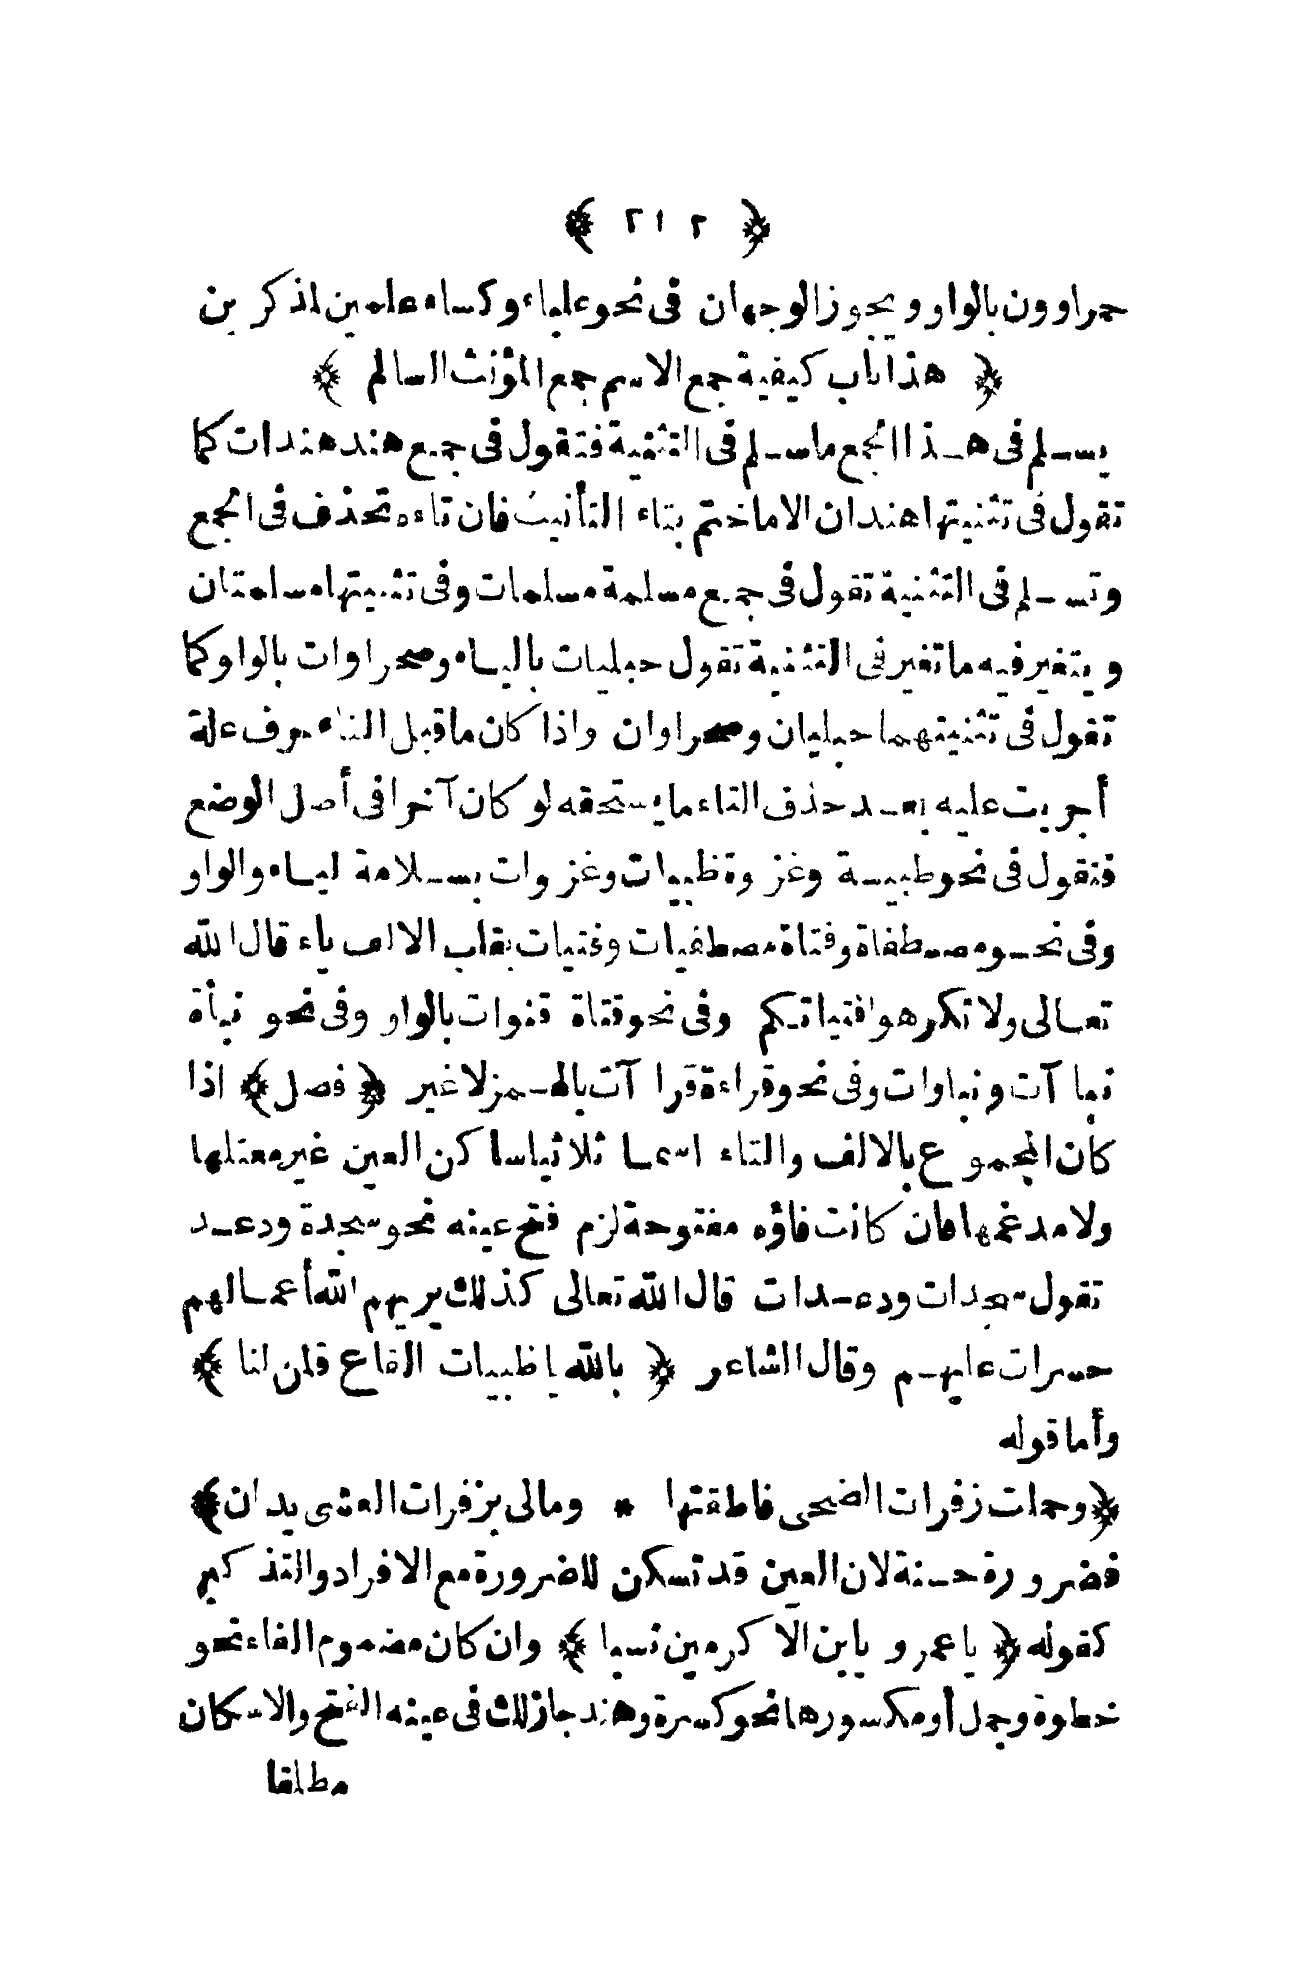 ﴿ ٢١٢ ﴾
حمراوون بالواو ويجوز الوجهان فى نحو علباء وكساء علمين لمذكرين
﴿ هذا باب كيفية جمع الاسم جمع المؤنث السالم ﴾
يسلم فى هذا الجمع ما سلم فى التثنية فتقول فى جمع هند هندات كما
تقول فى تثنيتها هندان الا ما ختم بتاء التأنيث فان تاءه تحذف فى الجمع
وتسلم فى التثنية تقول فى جمع مسلمة مسلمات وفى تثنيتها مسلمتان
ويتغير فيه ما تغير فى التثنية تقول حبليات بالياء وصحراوات بالواو كما
تقول فى تثنيتهما حبليان وصحراوان واذا كان ما قبل التاء حرف علة
أجريت عليه بعد حذف التاء ما يستحقه لو كان آخرا فى أصل الوضع
فتقول فى نحو ظبية وغزوة ظبيات وغزوات بسلامة الياء والواو
وفى نحو مصطفاة وفتاة مصطفيات وفتيات بقلب الالف ياء قال الله
تعالى ولا تكرهوا فتياتكم وفى نحو قناة قنوات بالواو وفى نحو نبأة
نبا آت ونباوات وفى نحو قراءة قرا آت بالهمز لا غير ﴿ فصل ﴾ اذا
كان المجموع بالالف والتاء اسما ثلاثيا ساكن العين غير معتلها
ولا مدغمها فان كانت فاؤه مفتوحة لزم فتح عينه نحو سجدة ودعد
تقول سجدات ودعدات قال الله تعالى كذلك يريهم الله أعمالهم
حسرات عليهم وقال الشاعر ﴿ بالله يا ظبيات القاع قلن لنا ﴾
وأما قوله
﴿ وحملت زفرات الضحى فاطقتها * ومالى بزفرات العشى يدان ﴾
فضرورة حسنة لان العين قد تسكن للضرورة مع الافراد والتذكير
كقوله ﴿ يا عمرو يا بن الاكرمين نسبا ﴾ وان كان مضموم الفاء نحو
خطوة وجمل أو مكسورها نحو كسرة وهند جاز لك فى عينه الفتح والاسكان
مطلقا